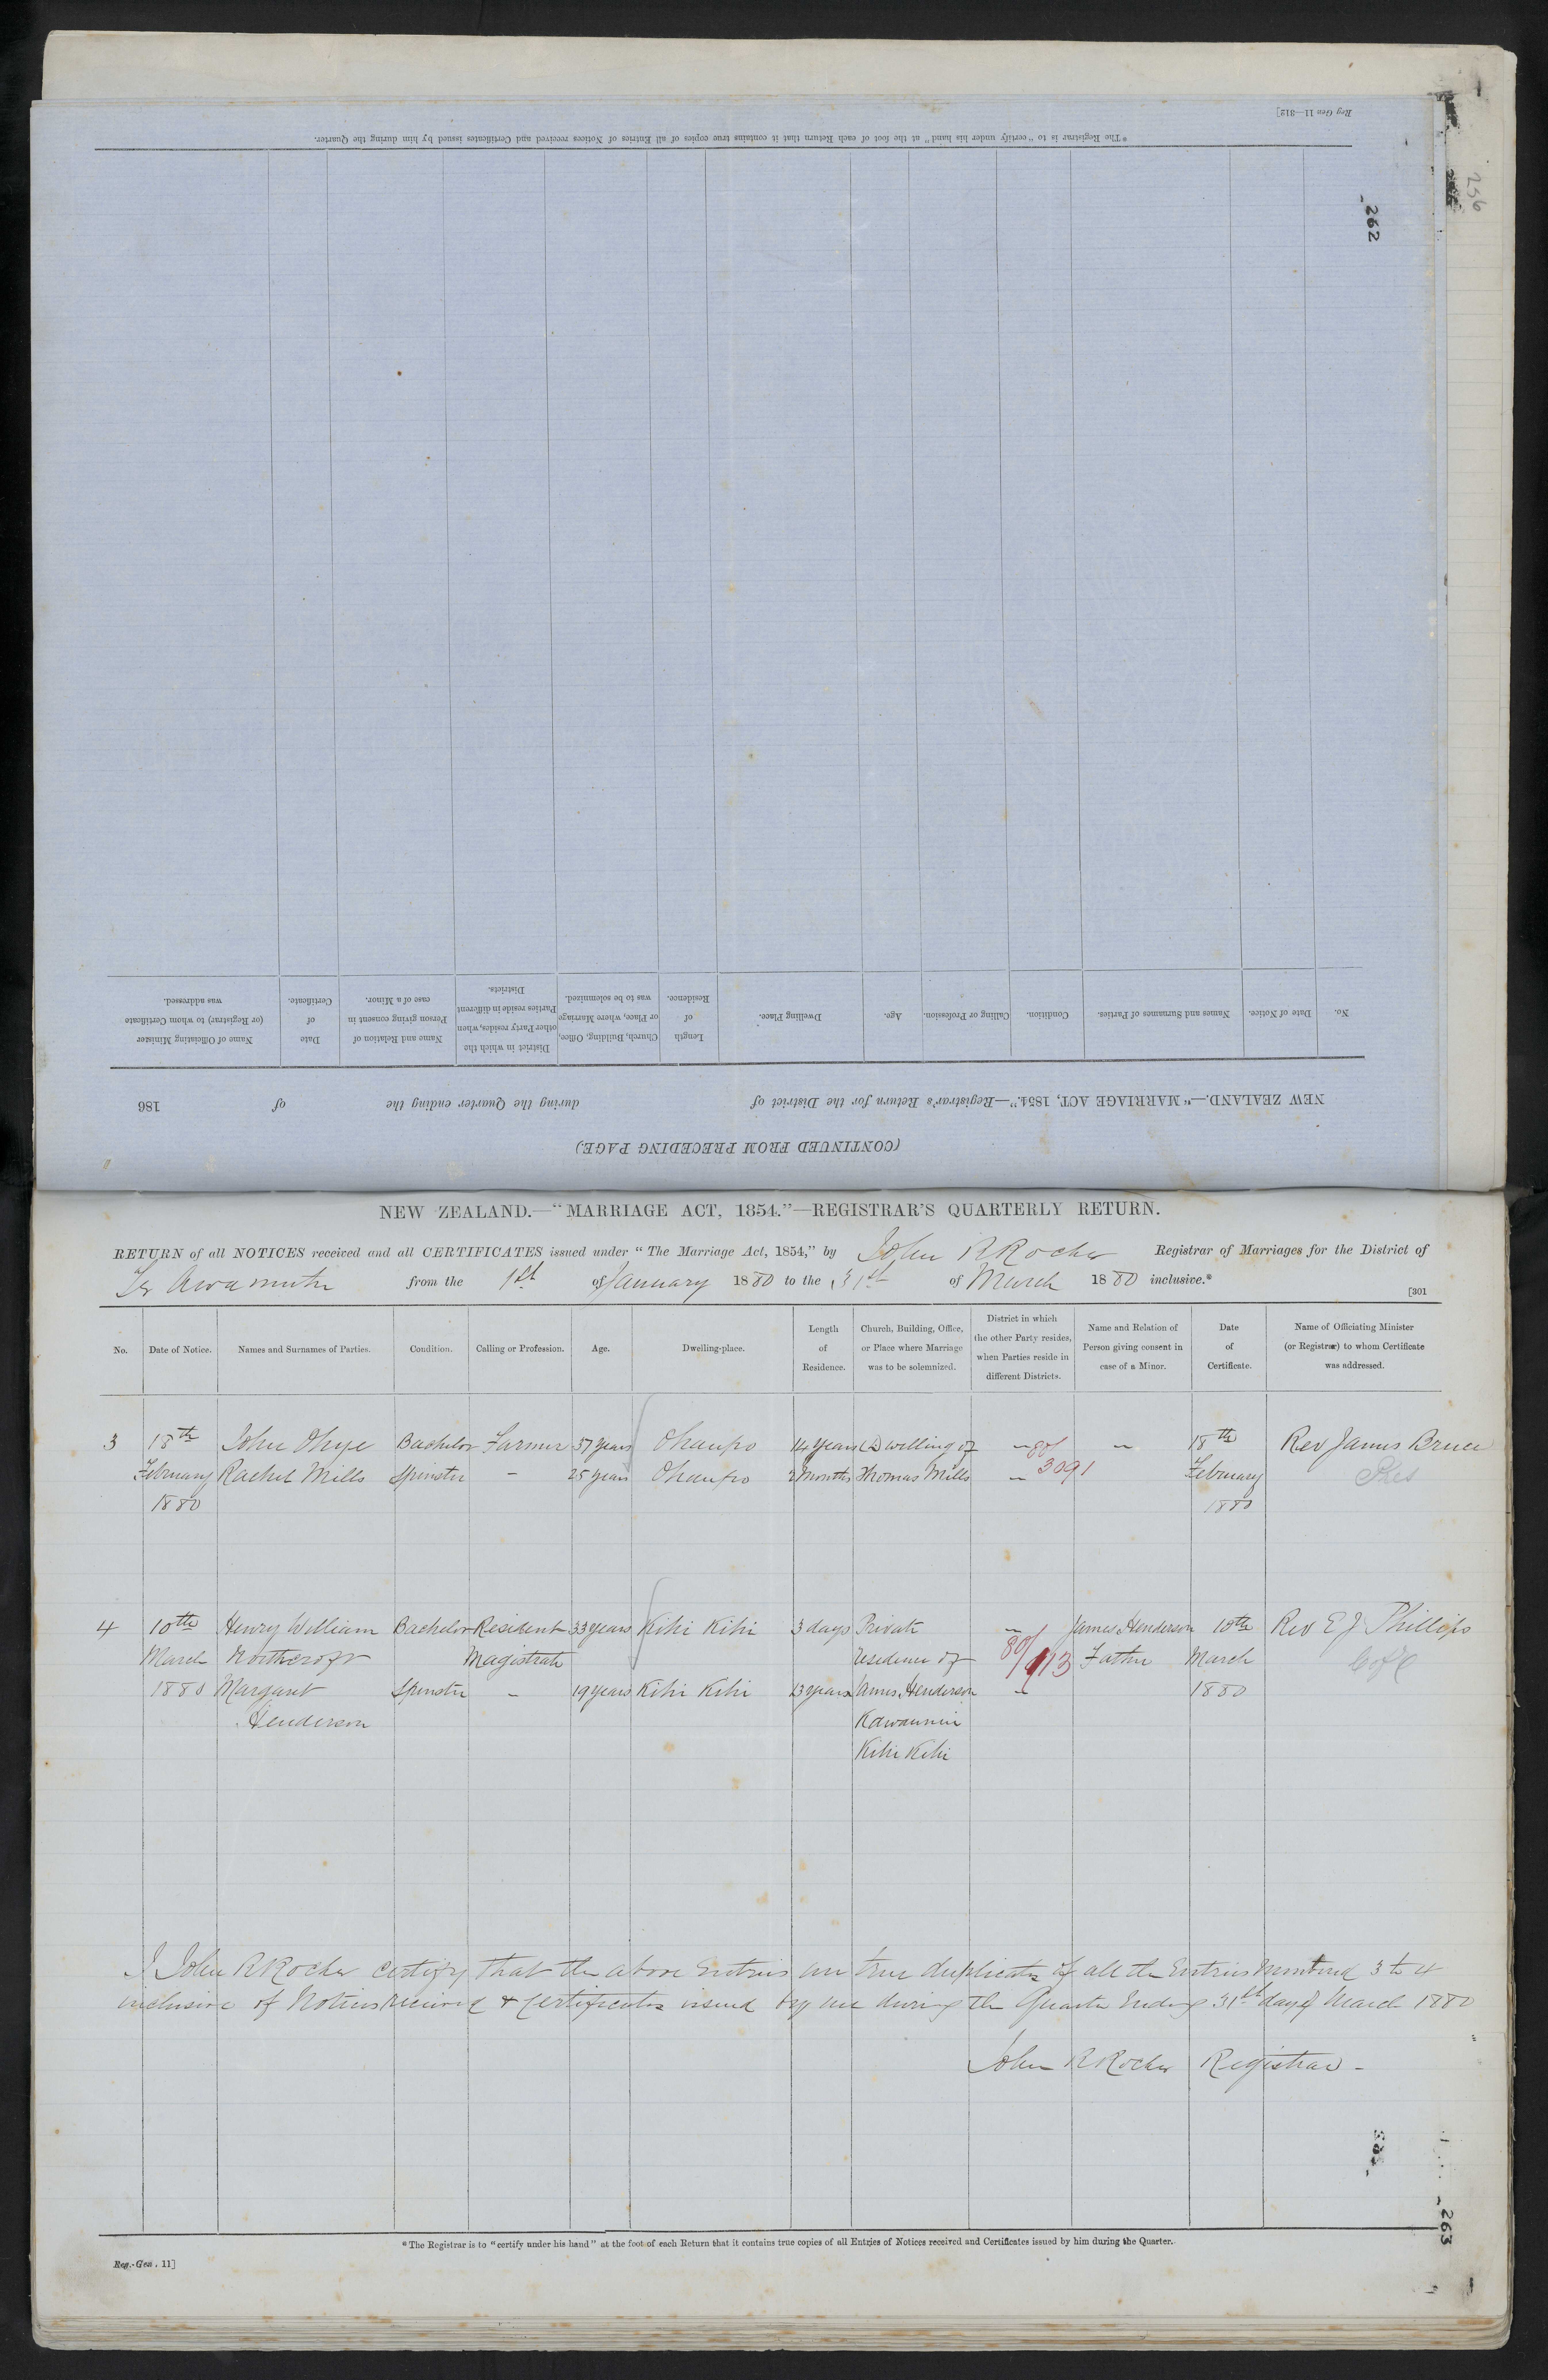 Reg Gen 11—312]
*The Registrar is to "certify under his hand" at the foot of each Return that it contains true copies of all Entries of Notices received and Certificates issued by him during the Quarter.
256
262
(CONTINUED FROM PRECEDING PAGE.)
NEW ZEALAND.—"MARRIAGE ACT, 1854."—Registrar's Return for the District of during the Quarter ending the of 186
No. Date of Notice. Names and Surnames of Parties. Condition. Calling or Profession. Age. Dwelling Place. Length of Residence. Church, Building, Office, or Place, where Marriage was to be solemnized. District in which the other Party resides, when Parties reside in different Districts. Name and Relation of Person giving consent in case of a Minor. Date of Certificate. Name of Officiating Minister (or Registrar) to whom Certificate was addressed.
NEW ZEALAND.—"MARRIAGE ACT, 1854."—REGISTRAR'S QUARTERLY RETURN.
RETURN of all NOTICES received and all CERTIFICATES issued under "The Marriage Act, 1854," by John R Rocher Registrar of Marriages for the District of
Te Awamutu from the 1st of January 1880 to the 31st of March 1880 inclusive.*
[301
No. Date of Notice. Names and Surnames of Parties. Condition. Calling or Profession. Age. Dwelling-place. Length of Residence. Church, Building, Office, or Place where Marriage was to be solemnized. District in which the other Party resides, when Parties reside in different Districts. Name and Relation of Person giving consent in case of a Minor. Date of Certificate. Name of Officiating Minister (or Registrar) to whom Certificate was addressed.
3 18th John Ohye Bachelor Farmer 37 years Ohaupo 14 years Dwelling of — 80/ — 18th Rev James Bruce
February Rachel Mills Spinster - 25 years Ohaupo 2 Months Thomas Mills — 3091 February Pres
1880 1880
4 10th Henry William Bachelor Resident 33 years Kihi Kihi 3 days Private — James Henderson 10th Rev E J Phillips
March Northcroft Magistrate residence of 80/113 Father March C of E
1880 Margaret Spinster - 19 years Kihi Kihi 13 years James Henderson — 1880
Henderson
Kihi Kihi
I John R Rocher certify that the above Entries are true duplicates of all the Entries numbered 3 to 4
inclusive of Notices received & certificates issued by me during the Quarter Ending 31st day of March 1880
John R Rocher Registrar -
263
*The Registrar is to "certify under his hand" at the foot of each Return that it contains true copies of all Entries of Notices received and Certificates issued by him during the Quarter.
Reg.-Gen. 11]